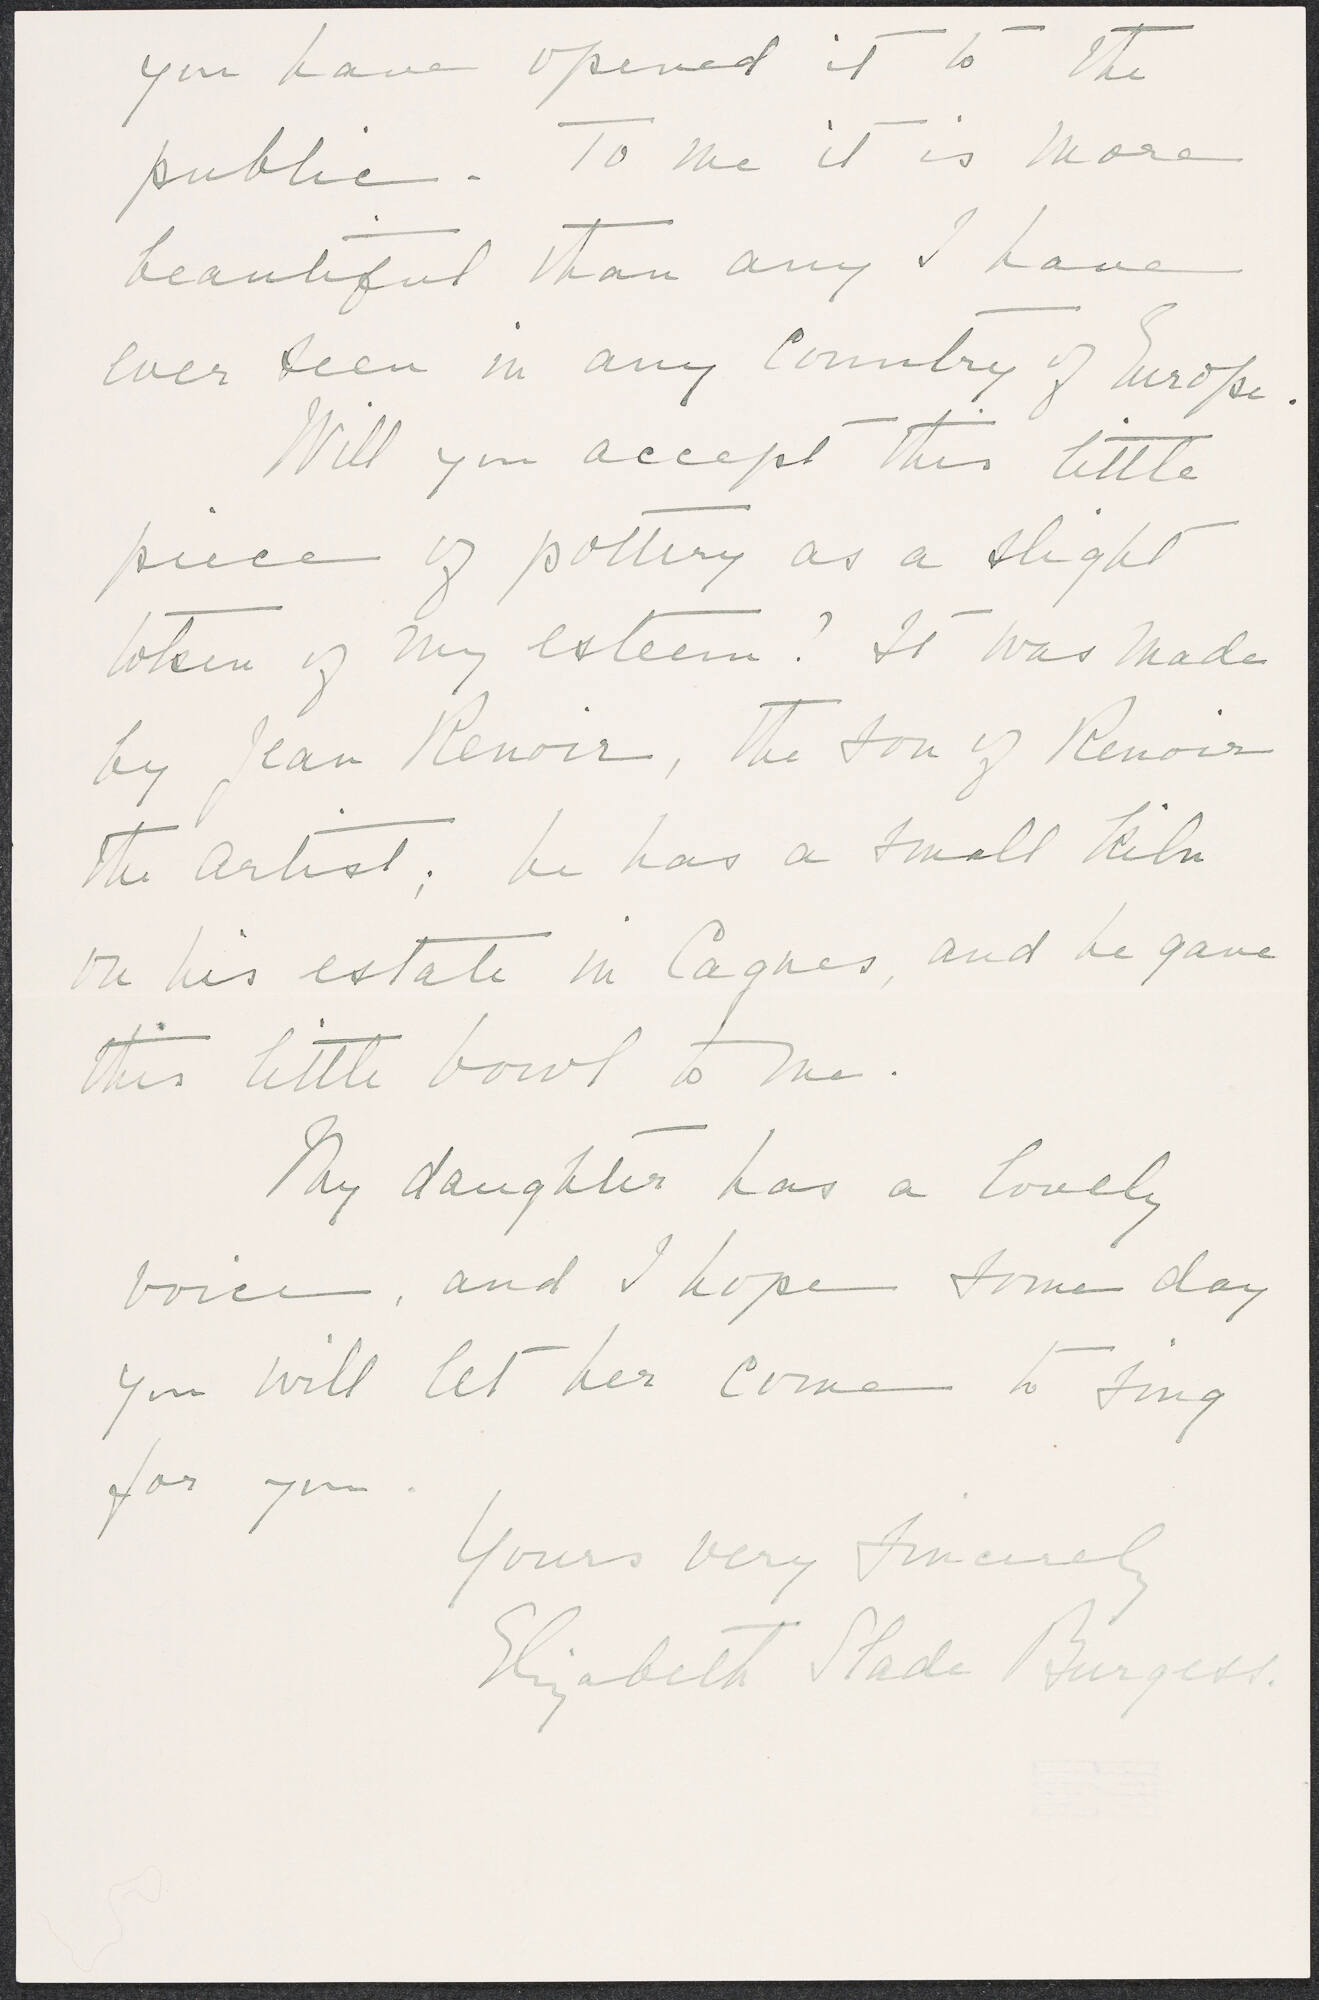 you have opened it to the
public. To me it is more
beautiful than any I have
ever seen in any country of Europe.
Will you accept this little
piece of pottery as a slight
token of my esteem? It was made
by Jean Renoir, the son of Renoir
the artist; he has a small kiln
on his estate in Cagnes, and he gave
this little bowl to me.
My daughter has a lovely
voice, and I hope some day
you will let her come to sing
for you.
Yours very sincerely
Elizabeth Slade Burgess.